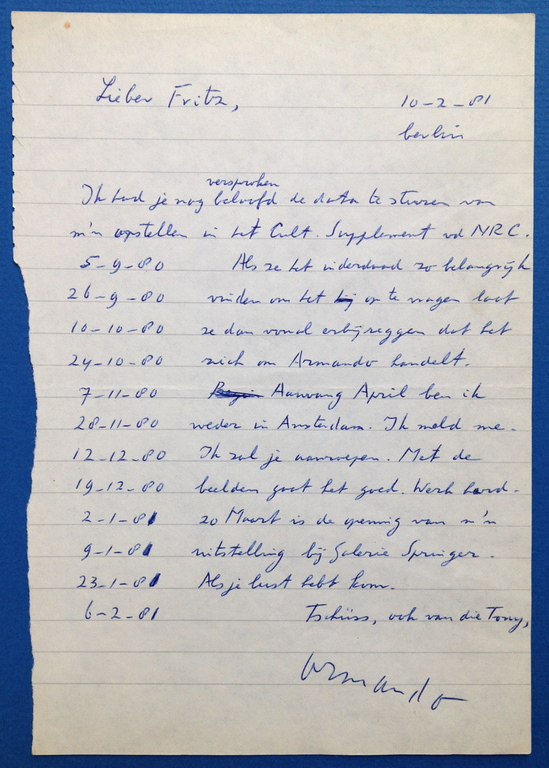 Lieber Fritz,
10-2-81
berlin
versprohen
Ik had je nog beloofd de data te sturen van
m'n opstellen in het Cult. Supplement vd NRC.
5-9-80 Als ze het inderdaad zo belangrijk
26-9-80 vinden om het hij op te vragen laat
10-10-80 ze dan vooral erbij zeggen dat het
24-10-80 zich om Armando handelt.
7-11-80 Begin Aanvang April ben ik
28-11-80 weder in Amsterdam. Ik meld me.
12-12-80 Ik zal je aanroepen. Met de
19-12-80 beelden gaat het goed. Werk hard.
2-1-81 20 Maart is de opening van m'n
9-1-81 uitstelling bij Galerie Springer.
23-1-81 Als je lust hebt kom.
6-2-81 Tschüss, ook van die Tony,
Armando